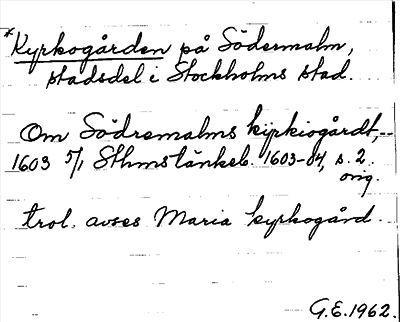 *Kyrkogården på Södermalm,
stadsdel i Stockholms stad.
Om Södremalms kyrkiogårdt,
1603 5/1 Sthmstänkeb. 1603-04, s. 2.
orig.
trol. avses Maria kyrkogård.
G.E. 1962.